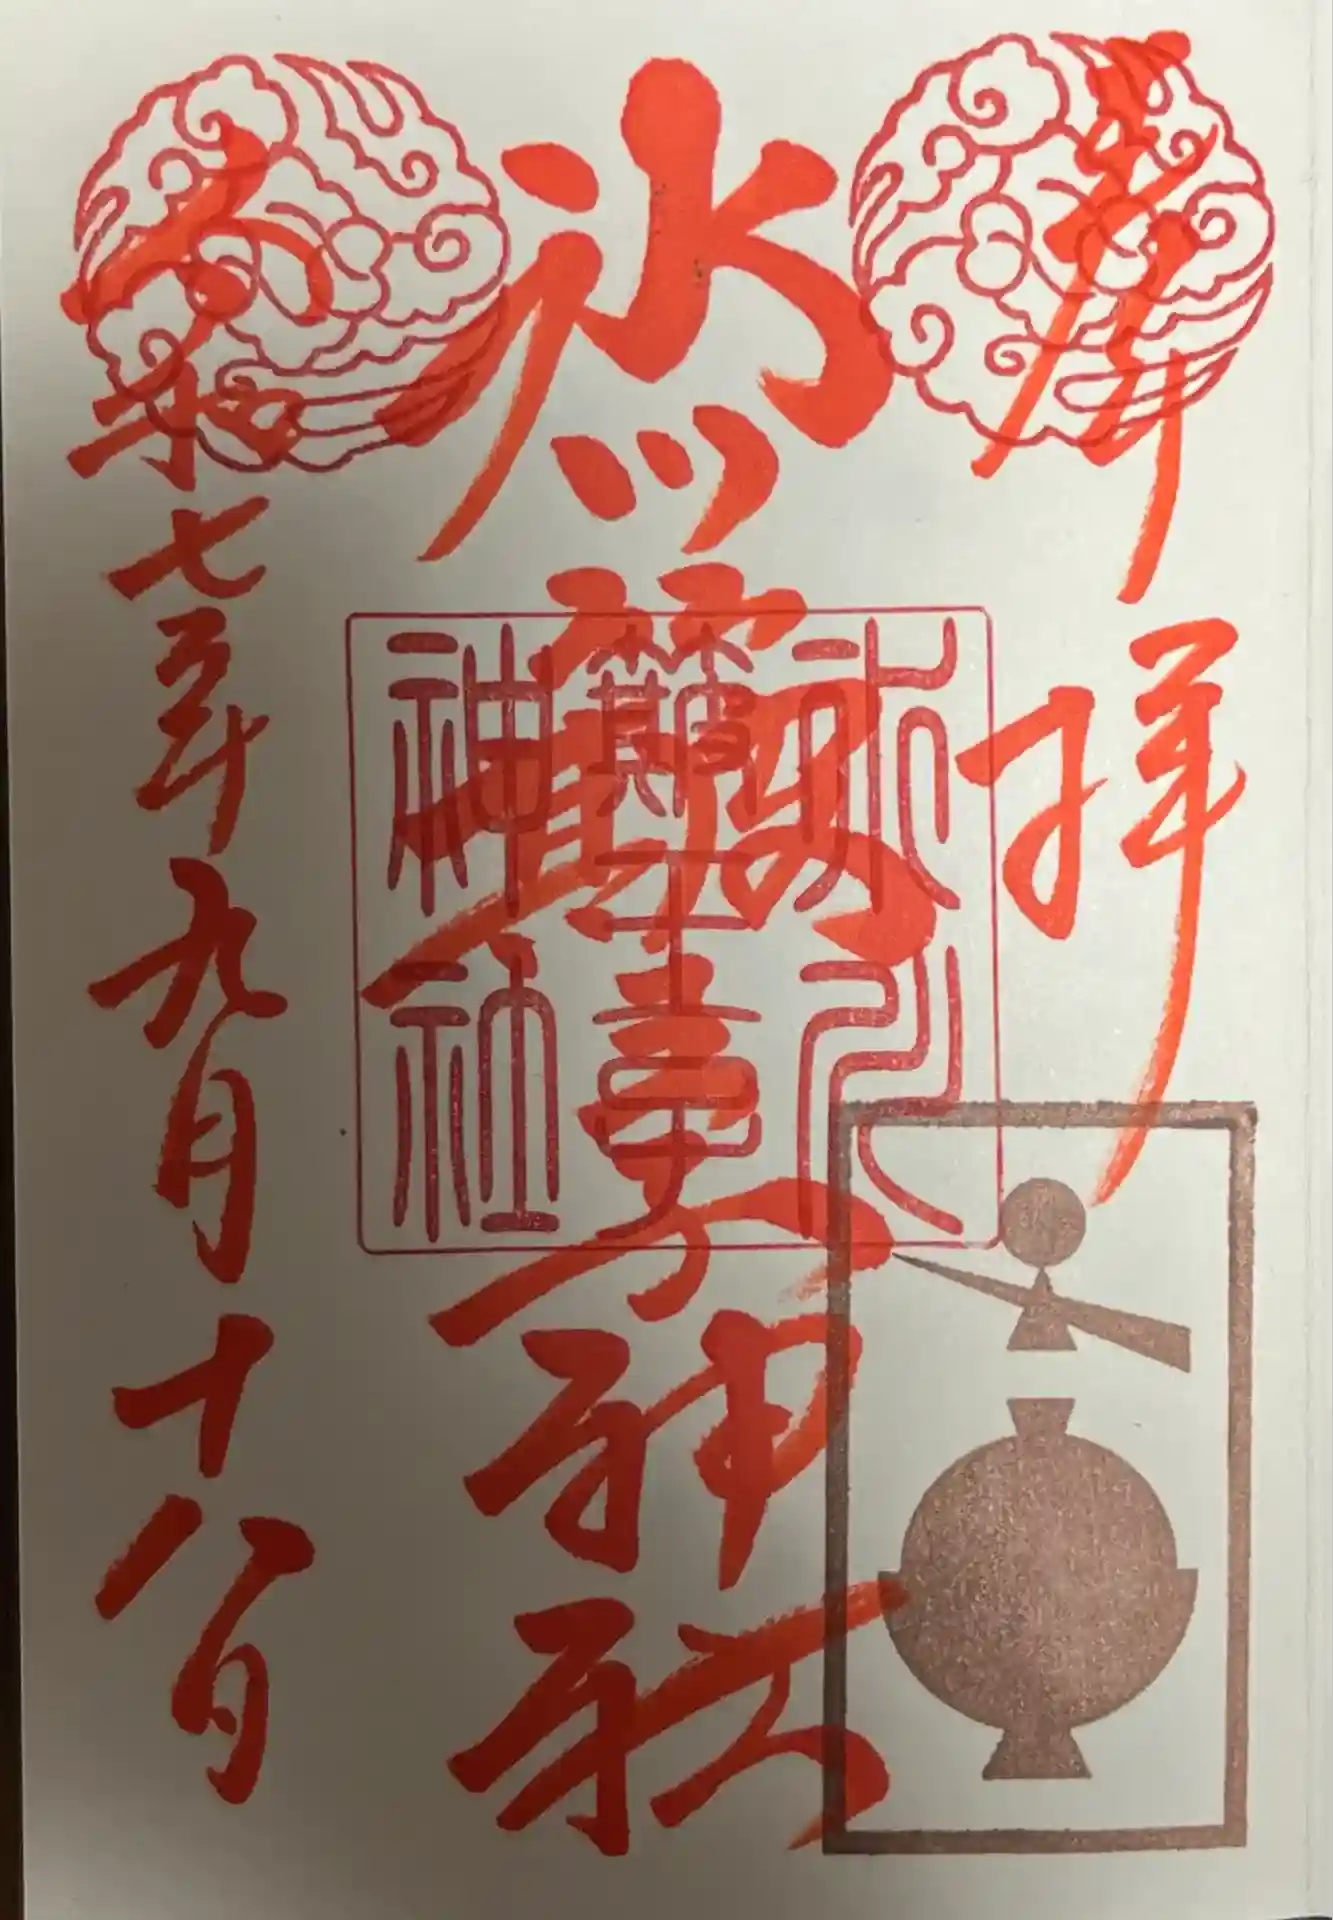 奉拝
氷川簸王子神社
令和七年九月十八日
氷川
簸王子
神社